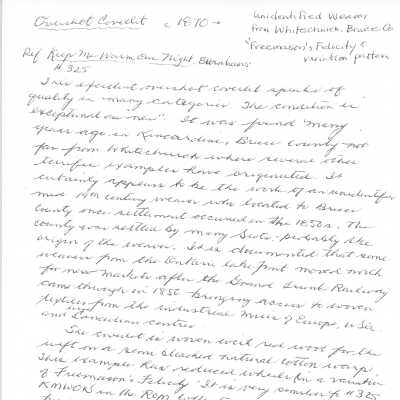 Overshot Coverlet c 1870 →
unidentified Weaver
from Whitechurch, Bruce Co
"Freemason's Felicity &
variation pattern
Ref Keep Me Warm One Night, Burnhams
#325
This excellent overshot coverlet speaks of
quality in many categories. The condition is
exceptional "as new". It was found many
years ago in Kincardine, Bruce County not
far from Whitechurch where several other
terrific examples have originated. It
certainly appears to be the work of an unidentified
mid 19th century weaver who located to Bruce
County once settlement occurred in the 1850s. The
county was settled by many Scots - probably the
origin of the weaver. It is documented that some
weavers from the Ontario lake front moved north
for new markets after the Grand Trunk Railway
came through in 1856 bringing access to woven
textiles from the industrial mills of Europe, USA
and Canadian centres
The coverlet is woven with red wool for the
weft on a semi bleached natural cotton warp.
This example has reduced wheels for a variation
of Freemason's Felicity. It is very similar to #325
KMWON in the ROM